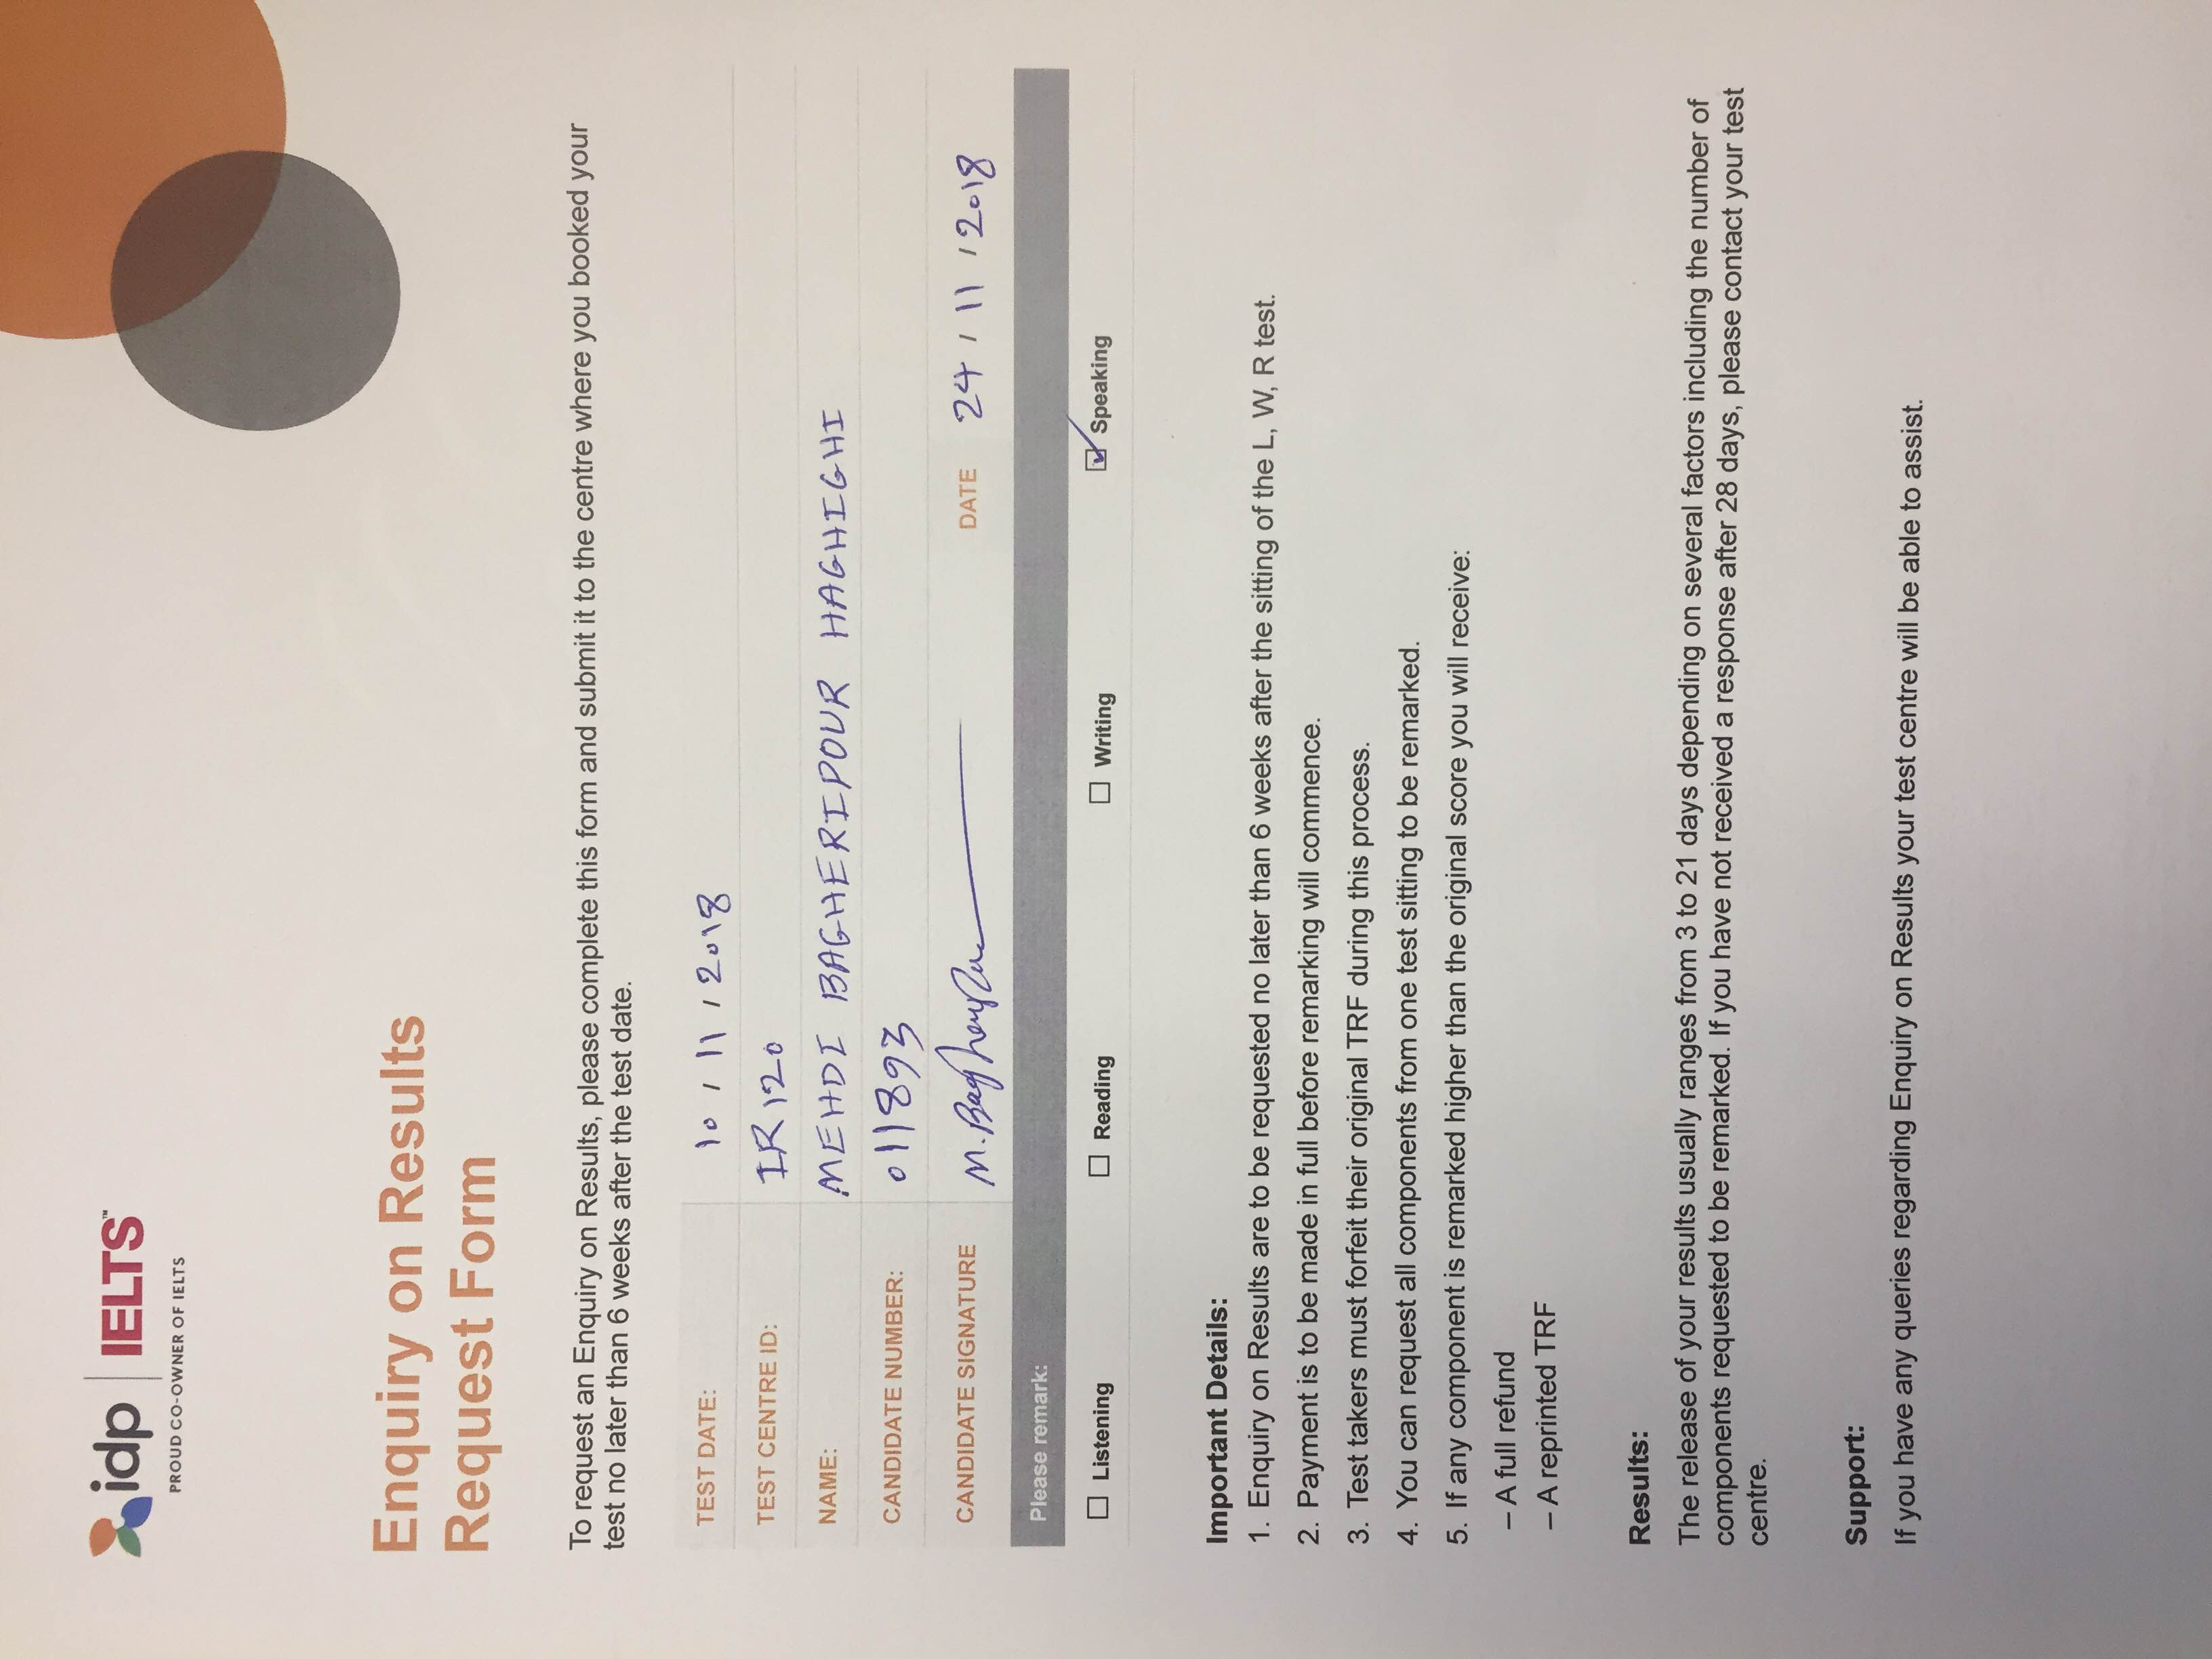 idp IELTS™
PROUD CO-OWNER OF IELTS
Enquiry on Results
Request Form
To request an Enquiry on Results, please complete this form and submit it to the centre where you booked your
test no later than 6 weeks after the test date.
TEST DATE: 10 / 11 / 2018
TEST CENTRE ID: IR 120
NAME: MEHDI BAGHERIPOUR HAGHIGHI
CANDIDATE NUMBER: 011893
CANDIDATE SIGNATURE M. DATE 24 / 11 / 2018
Please remark:
Listening Reading Writing Speaking
Important Details:
1. Enquiry on Results are to be requested no later than 6 weeks after the sitting of the L, W, R test.
2. Payment is to be made in full before remarking will commence.
3. Test takers must forfeit their original TRF during this process.
4. You can request all components from one test sitting to be remarked.
5. If any component is remarked higher than the original score you will receive:
– A full refund
– A reprinted TRF
Results:
The release of your results usually ranges from 3 to 21 days depending on several factors including the number of
components requested to be remarked. If you have not received a response after 28 days, please contact your test
centre.
Support:
If you have any queries regarding Enquiry on Results your test centre will be able to assist.